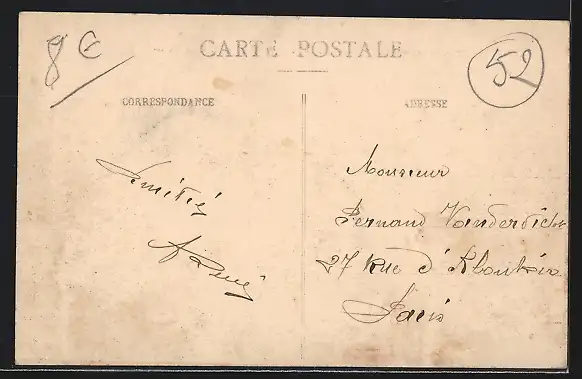 8 €
CARTE POSTALE
52
CORRESPONDANCE
ADRESSE
Amitiés
Monsieur
Fernand Vanderdick
27 Rue d'Aboukir
Paris